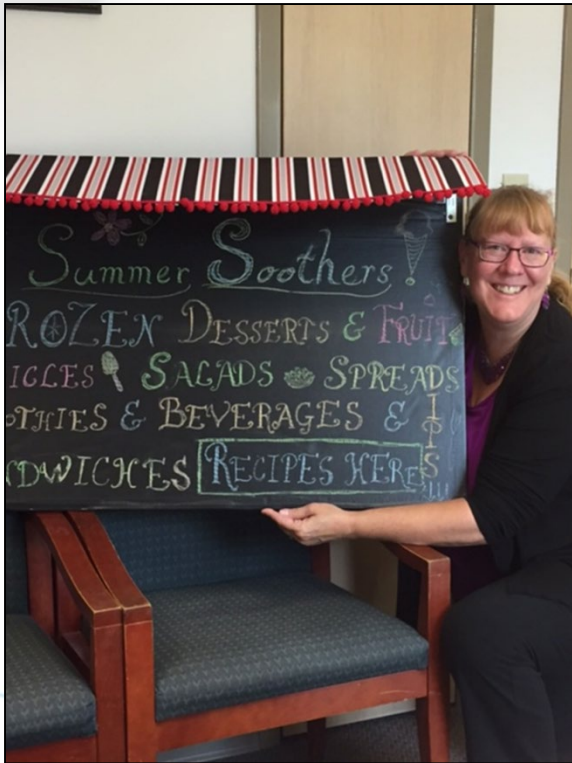 Summer Soothers!
ROZEN DESSERTS & FRUIT
ICLES SALADS SPREADS
OTHIES & BEVERAGES & DIPS
NDWICHES RECIPES HERE!!!